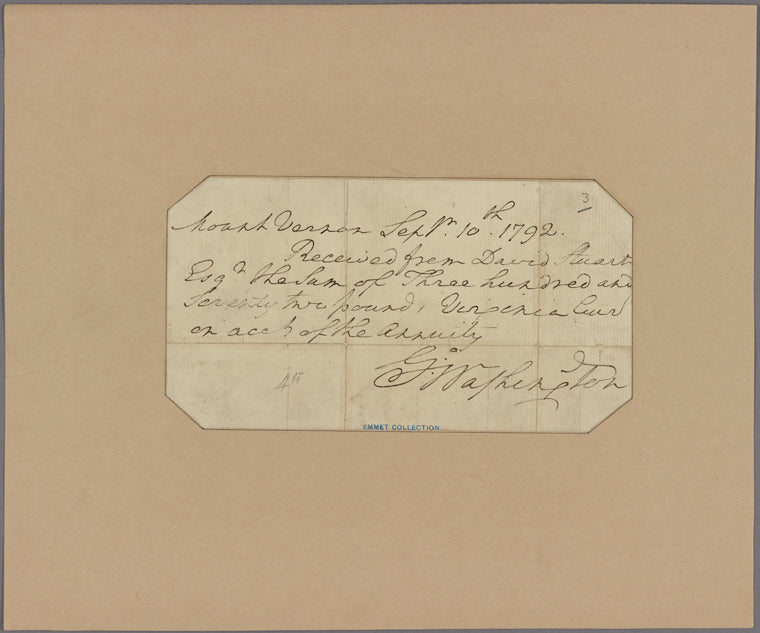 3
Mount Vernon Sepr. 10th. 1792.
Received from David Stuart
Esqr. the Sum of Three hundred and
Seventy two pounds Virginia Curr
on acct. of the Annuity
Go. Washington
EMMET COLLECTION.